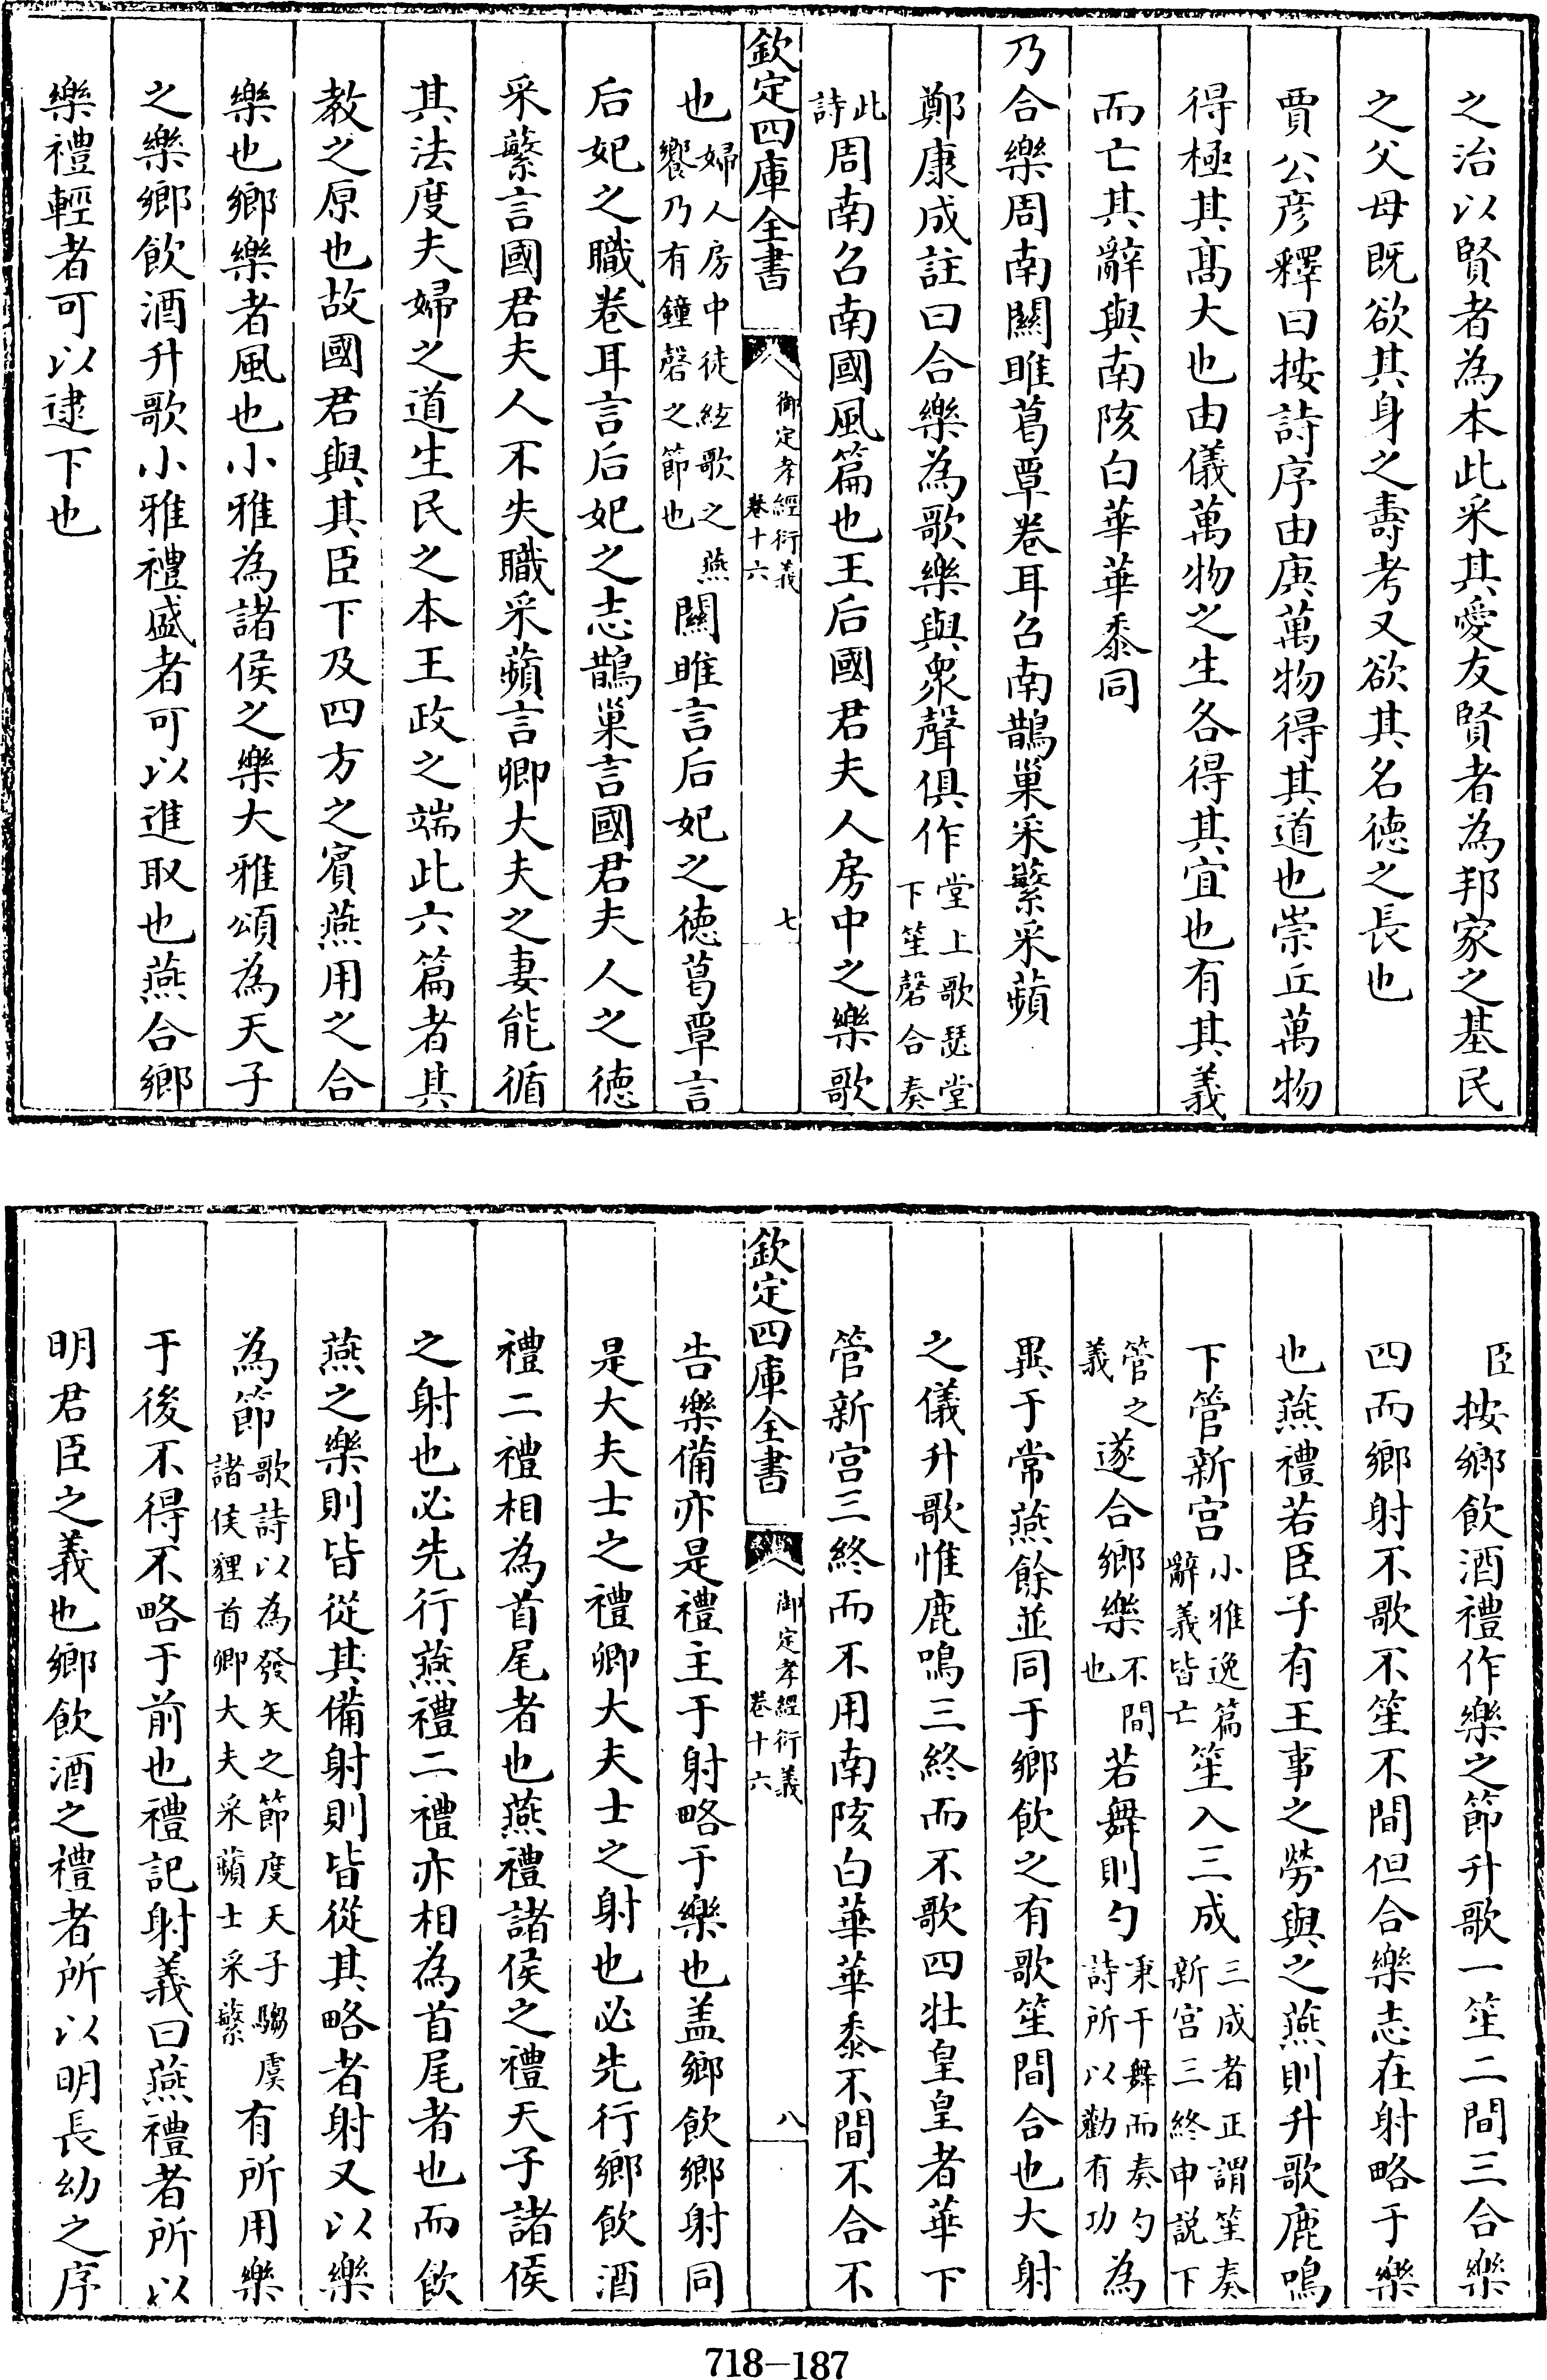 之治以賢者為本此采其愛友賢者為邦家之基民
之父母既欲其身之壽考又欲其名德之長也
賈公彥釋曰按詩序由庚萬物得其道也崇丘萬物
得極其髙大也由儀萬物之生各得其宜也有其義
而亡其辭與南陔白華華黍同
乃合樂周南關雎葛覃卷耳召南鵲巢采蘩采蘋
鄭康成註曰合樂為歌樂與衆聲俱作堂上歌瑟堂下笙磬合奏
此詩周南召南國風篇也王后國君夫人房中之樂歌
欽定四庫全書
御定孝經衍義
卷十六
七
也婦人房中徒絃歌之燕饗乃有鐘磬之節也關雎言后妃之德葛覃言
后妃之職卷耳言后妃之志鵲巢言國君夫人之德
采蘩言國君夫人不失職采蘋言卿大夫之妻能循
其法度夫婦之道生民之本王政之端此六篇者其
教之原也故國君與其臣下及四方之賓燕用之合
樂也鄉樂者風也小雅為諸侯之樂大雅頌為天子
之樂鄉飲酒升歌小雅禮盛者可以進取也燕合鄉
樂禮輕者可以逮下也
臣按鄉飲酒禮作樂之節升歌一笙二間三合樂
四而鄉射不歌不笙不間但合樂志在射略于樂
也燕禮若臣子有王事之勞與之燕則升歌鹿鳴
下管新宫小雅逸篇辭義皆亡笙入三成三成者正謂笙奏新宫三終申説下
管之義遂合鄉樂不間也若舞則勺秉干舞而奏勺詩所以勸有功為
異于常燕餘並同于鄉飲之有歌笙間合也大射
之儀升歌惟鹿鳴三終而不歌四壯皇皇者華下
管新宫三終而不用南陔白華華黍不間不合不
欽定四庫全書
御定孝經衍義
卷十六
八
告樂備亦是禮主于射略于樂也盖鄉飲鄉射同
是大夫士之禮卿大夫士之射也必先行鄉飲酒
禮二禮相為首尾者也燕禮諸侯之禮天子諸侯
之射也必先行燕禮二禮亦相為首尾者也而飲
燕之樂則皆從其備射則皆從其略者射又以樂
為節歌詩以為發矢之節度天子騶虞諸侯貍首卿大夫采蘋士采蘩有所用樂
于後不得不略于前也禮記射義曰燕禮者所以
明君臣之義也鄉飲酒之禮者所以明長幼之序
718-187